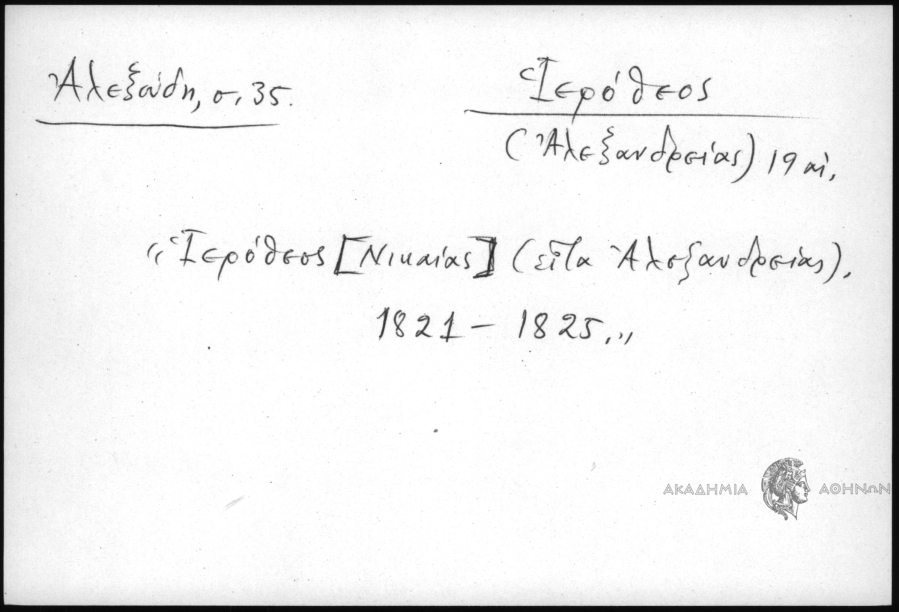 Ἀλεξούδη, σ. 35.
Ἱερόθεος
(Ἀλεξανδρείας) 19 αἰ.
"Ἱερόθεος [Νικαίας] (εἶτα Ἀλεξανδρείας),
1821 – 1825."
ΑΚΑΔΗΜΙΑ ΑΘΗΝΩΝ